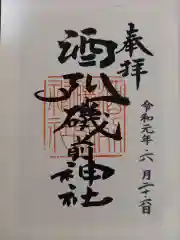 奉拝
酒列磯前神社
令和元年六月二十六日